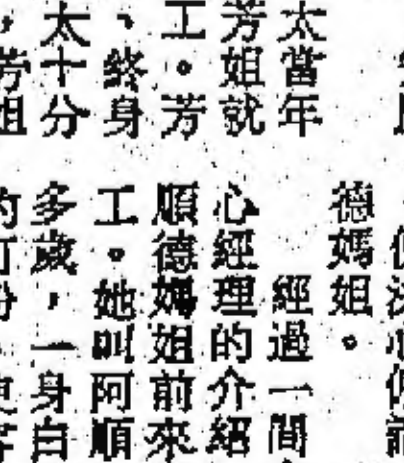 太當年
芳姐就
工。芳
、終身
太十分
，芳姐
德媽姐。
經過一間
心經理的介紹
順德媽姐前來
工。她叫阿順
多歲，一身白